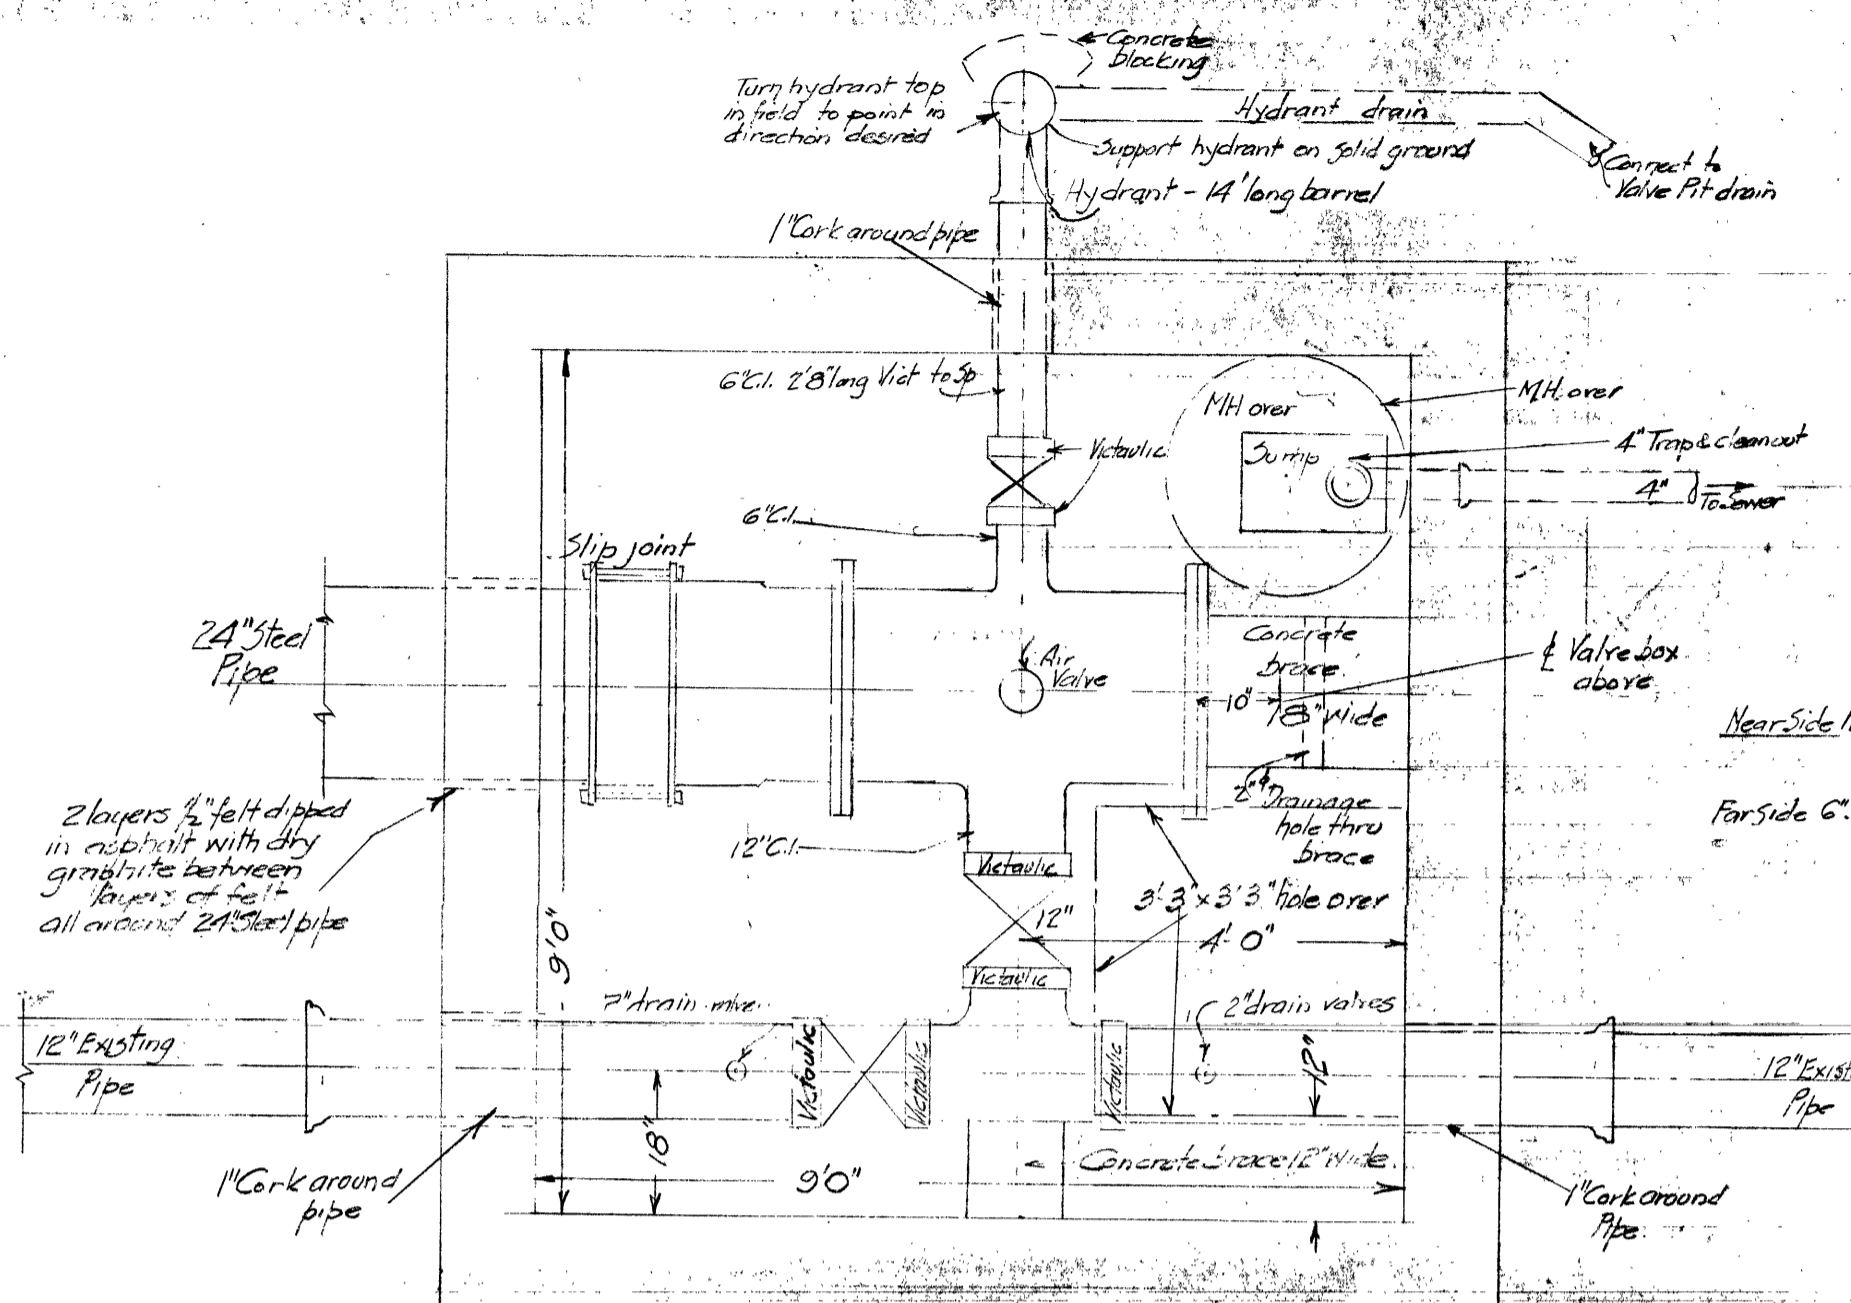 Concrete
blocking
Turn hydrant top
in field to point in
direction desired
Hydrant drain
Support hydrant on solid ground
Connect to
Valve Pit drain
Hydrant - 14' long barrel
1" Cork around pipe
6" C.I. 2'8" long Vict to Sp
MH over
MH over
Victaulic
Sump
4" Trap & cleanout
4"
To Sewer
6" C.I.
Slip joint
24" Steel
Pipe
Air
Valve
Concrete
brace
10"
18" Wide
℄ Valve box
above
Near Side
Far Side 6"
2"⌀ Drainage
hole thru
brace
2 layers ½" felt dipped
in asphalt with dry
graphite between
layers of felt
all around 24" Steel pipe
12" C.I.
Victaulic
3'-3" x 3'-3" hole over
12"
4'-0"
9'0"
Victaulic
2" drain valves
12" Existing
Pipe
Victaulic
Victaulic
Victaulic
12"
12" Exist
Pipe
18"
Concrete brace 12" Wide
9'0"
1" Cork around
pipe
1" Cork around
Pipe